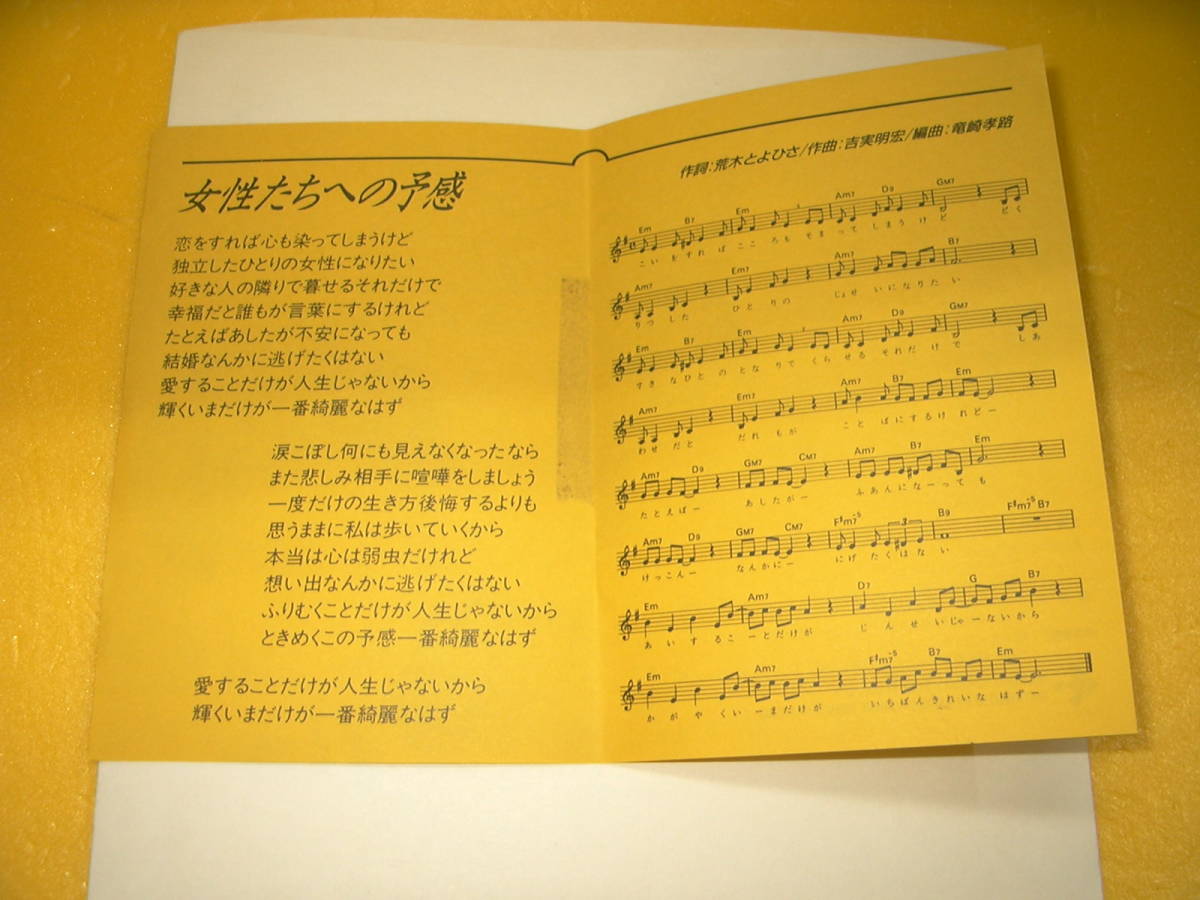 女性たちへの予感
恋をすれば心も染ってしまうけど
独立したひとりの女性になりたい
好きな人の隣りで暮せるそれだけで
幸福だと誰もが言葉にするけれど
たとえばあしたが不安になっても
結婚なんかに逃げたくはない
愛することだけが人生じゃないから
輝くいまだけが一番綺麗なはず
涙こぼし何にも見えなくなったなら
また悲しみ相手に喧嘩をしましょう
一度だけの生き方後悔するよりも
思うままに私は歩いていくから
本当は心は弱虫だけれど
想い出なんかに逃げたくはない
ふりむくことだけが人生じゃないから
ときめくこの予感一番綺麗なはず
愛することだけが人生じゃないから
輝くいまだけが一番綺麗なはず
作詞:荒木とよひさ/作曲:吉実明宏/編曲:竜崎孝路
Em B7 Em Am7 D9 GM7
こい をすれ ば ここ ろも そまって しまう けど どく
Am7 Em7 Am7 B7
りつ した ひと りの じょせ いになりた い
Em B7 Em Am7 D9 GM7
すき なひと の とな りで くらせる それだ けで しあ
Am7 Em7 Am7 B7 Em
わせ だと だれ もが こと ばにするけ れどー
Am7 D9 GM7 CM7 Am7 B7 Em
たとえばー あしたがー ふあんになーって も
Am7 D9 GM7 CM7 F#m7-5 B9 F#m7-5 B7
けっこんー なんかにー にげ たくはな い
Em Am7 D7 G B7
あ い す るこ ーとだけが じ ん せ いじゃーないから
Em Am7 F#m7-5 B7 Em
か が や くい ーまだけが いちばんきれいな はずー